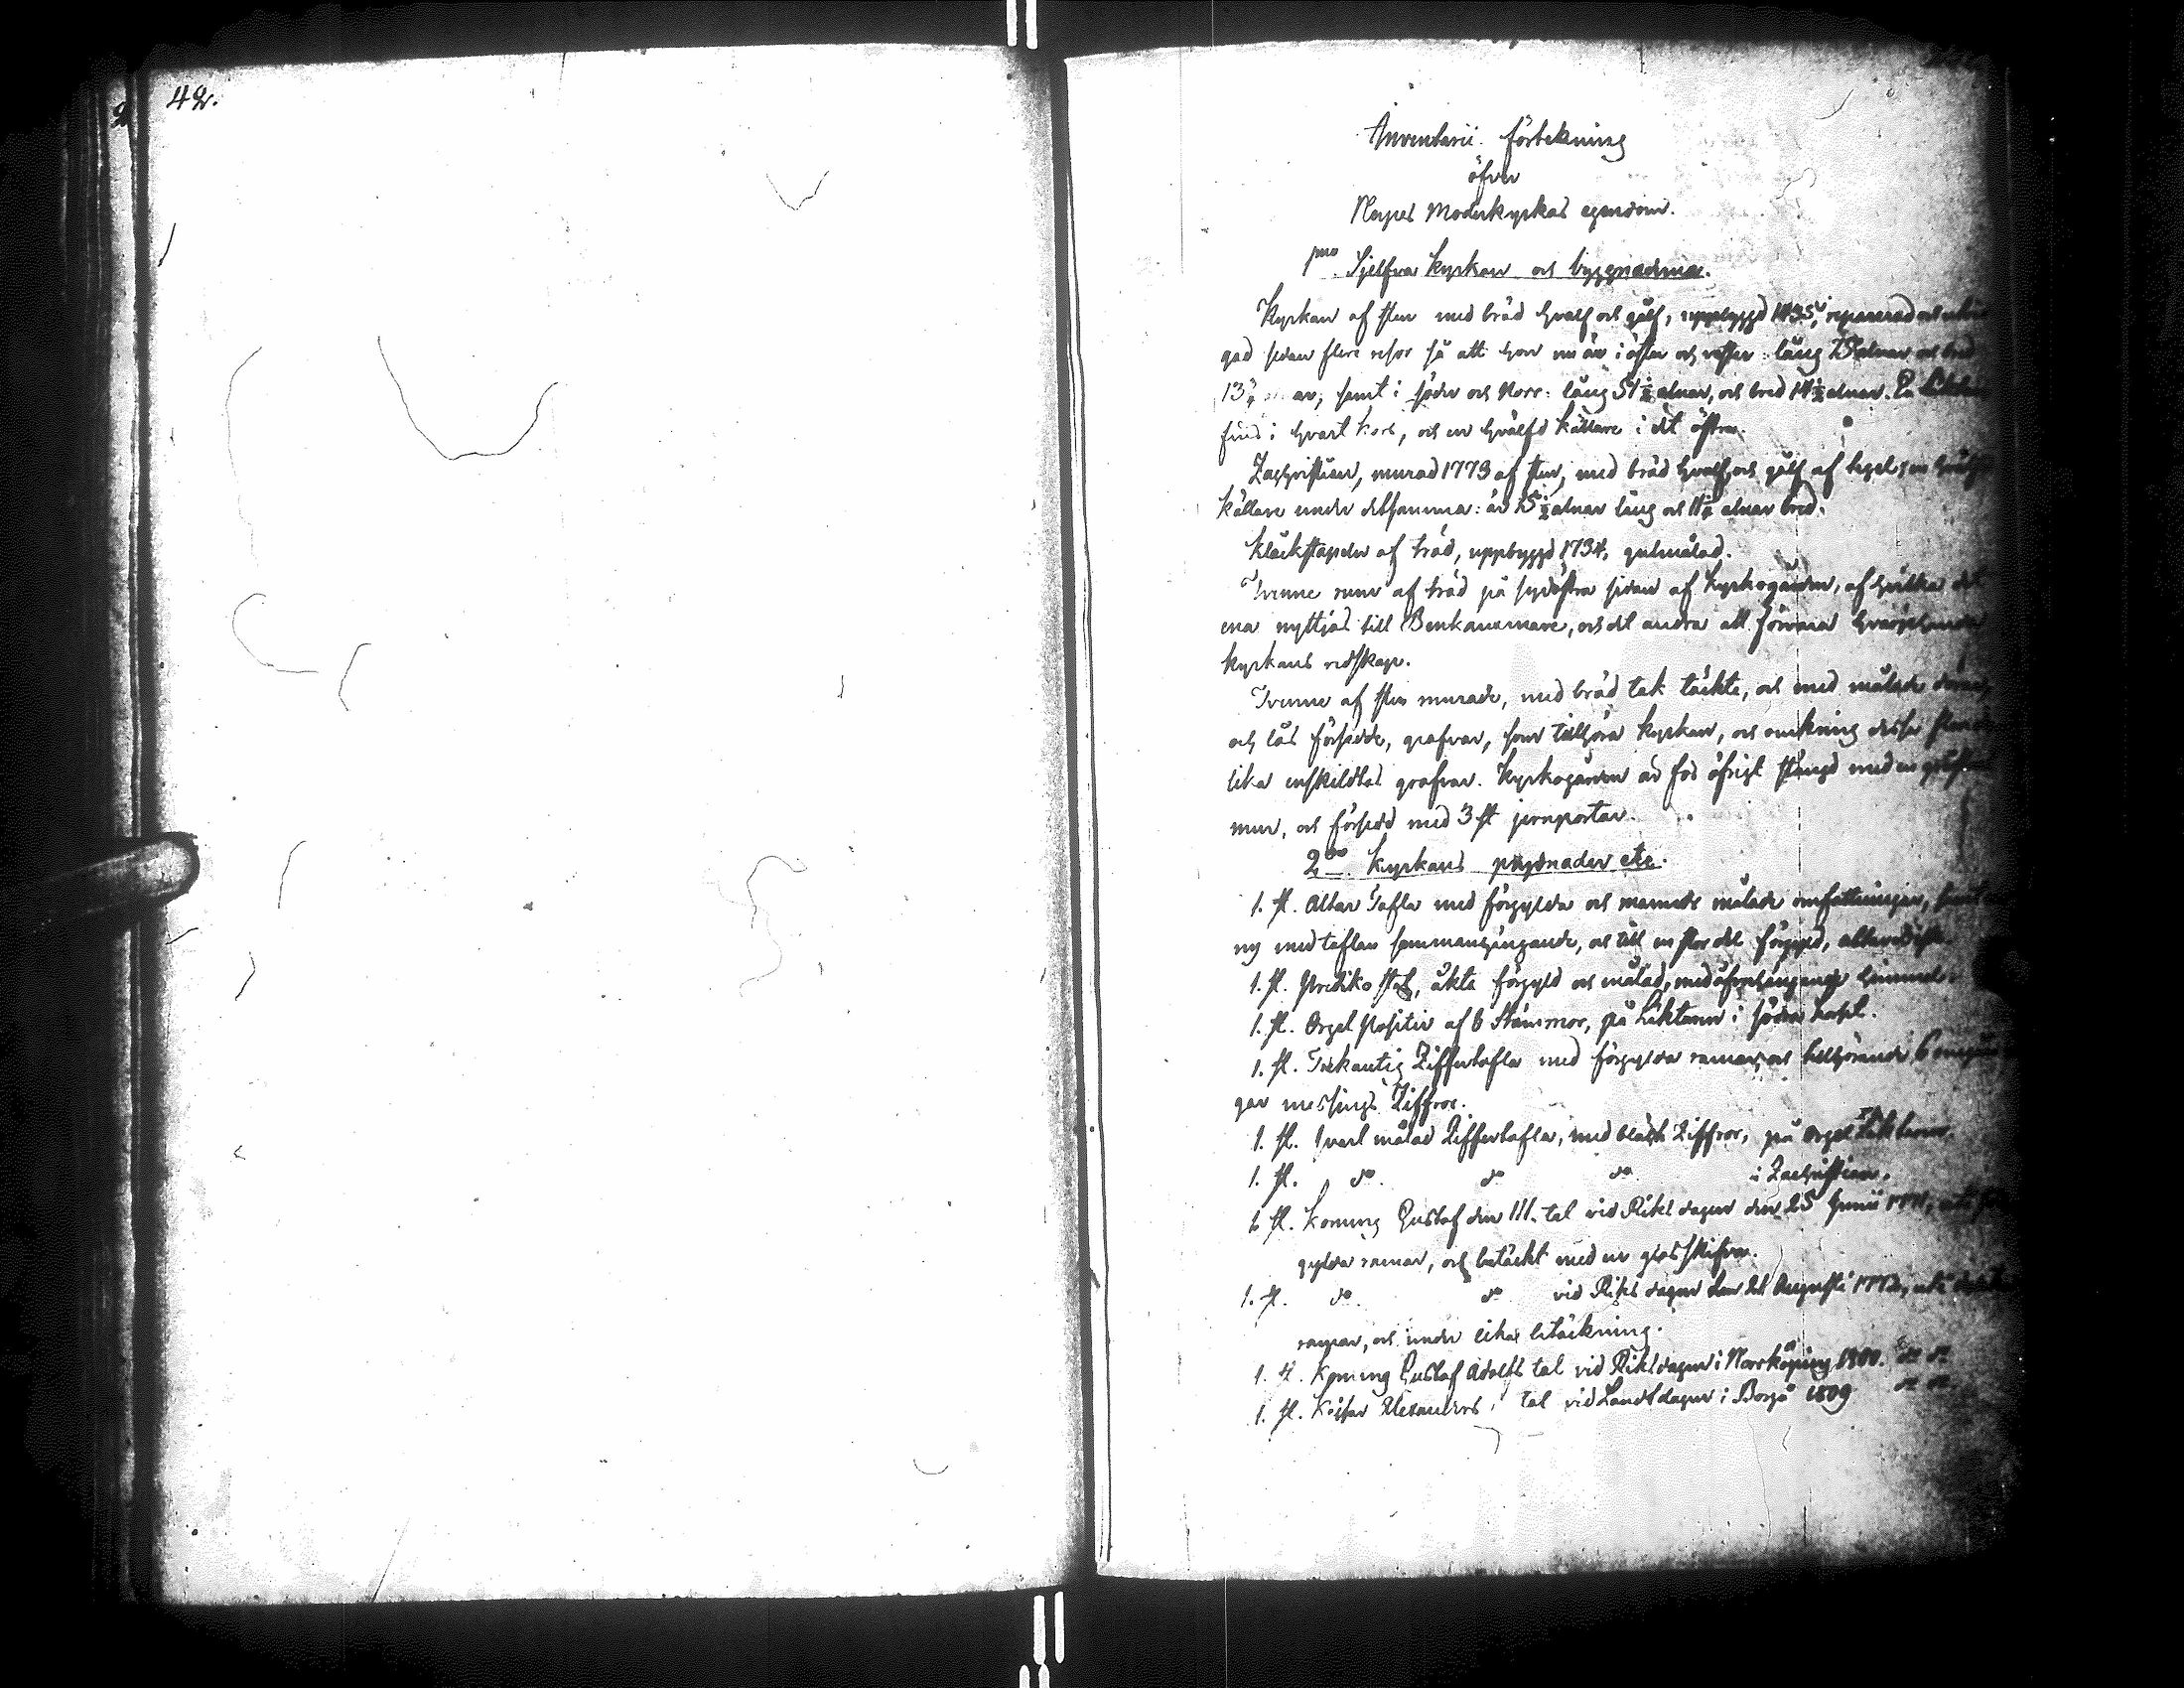 42.
Inventarii förtekning
öfver
Nerpes Moderkyrkas egendom.
pmo Sjelfva kyrkan och byggnaderna.
Kyrkan af sten med bräd hvalf och golf, uppbyggd 1435, reparerad och
gad sedan flere resor så att hon nu är i öster och vester: lång 75 alnar och bred
13 samt i söder och Norr: lång 51½ alnar, och bred 14½ alnar. En
fins i hvart kors, och en hvälfd källare i det östra.
Zachristian, murad 1773 af sten, med bräd hvalf och golf af tegel, en
källare under detsamma: är 15½ alnar lång och alnar bred.
Klåckstapeln af träd, uppbyggd 1734, gulmålad.
Tvenne rum af träd på sydöstra sidan af kyrkogården, af hvilka det
ena nyttjas till Benkammare, och det andra att förvara
kyrkans redskap.
Tvenne af sten murade, med bräd tak täckte, och med målade dörrar,
och lås försedde, grafvar, som tillhöra kyrkan, och omkring dessa
lika enskildtas grafvar. Kyrkogården är för öfrigt stängd med en
mur, och försedd med 3 st jernportar.
2do Kyrkans prydnader etc.
1. st. Altar Tafla med förgylda och målade omfattningar, samt
ny med taflan sammanhängande, och till en stor del förgyld,
1. st. Prediko stol, äkta förgyld och målad, med ofvanhängande himmel.
1. st. Orgel Positiv af 6 Stämmor, på Läktaren i södra
1. st. Trekantig Ziffertafla med förgylda ramar, och tillhörande
gar messings Ziffror.
1. st. svart målad Ziffertafla, med bläck Ziffror, på Orgel Läktaren.
1. st. do. do do i Zachristian.
1. st. Konung Gustaf den III. tal vid Riks dagen den 25 Junii 1771,
gylda ramar, och betäckt med en glasskifva.
1. st. do. do vid Riks dagen den 21 Augusti 1772,
ramar, och under lika betäckning.
1. st. Konung Gustaf Adolfs tal vid Riksdagen i Norrköping 1800. do do
1. st. Kejsar Alexanders tal vid Landtdagen i Borgå 1809 do do